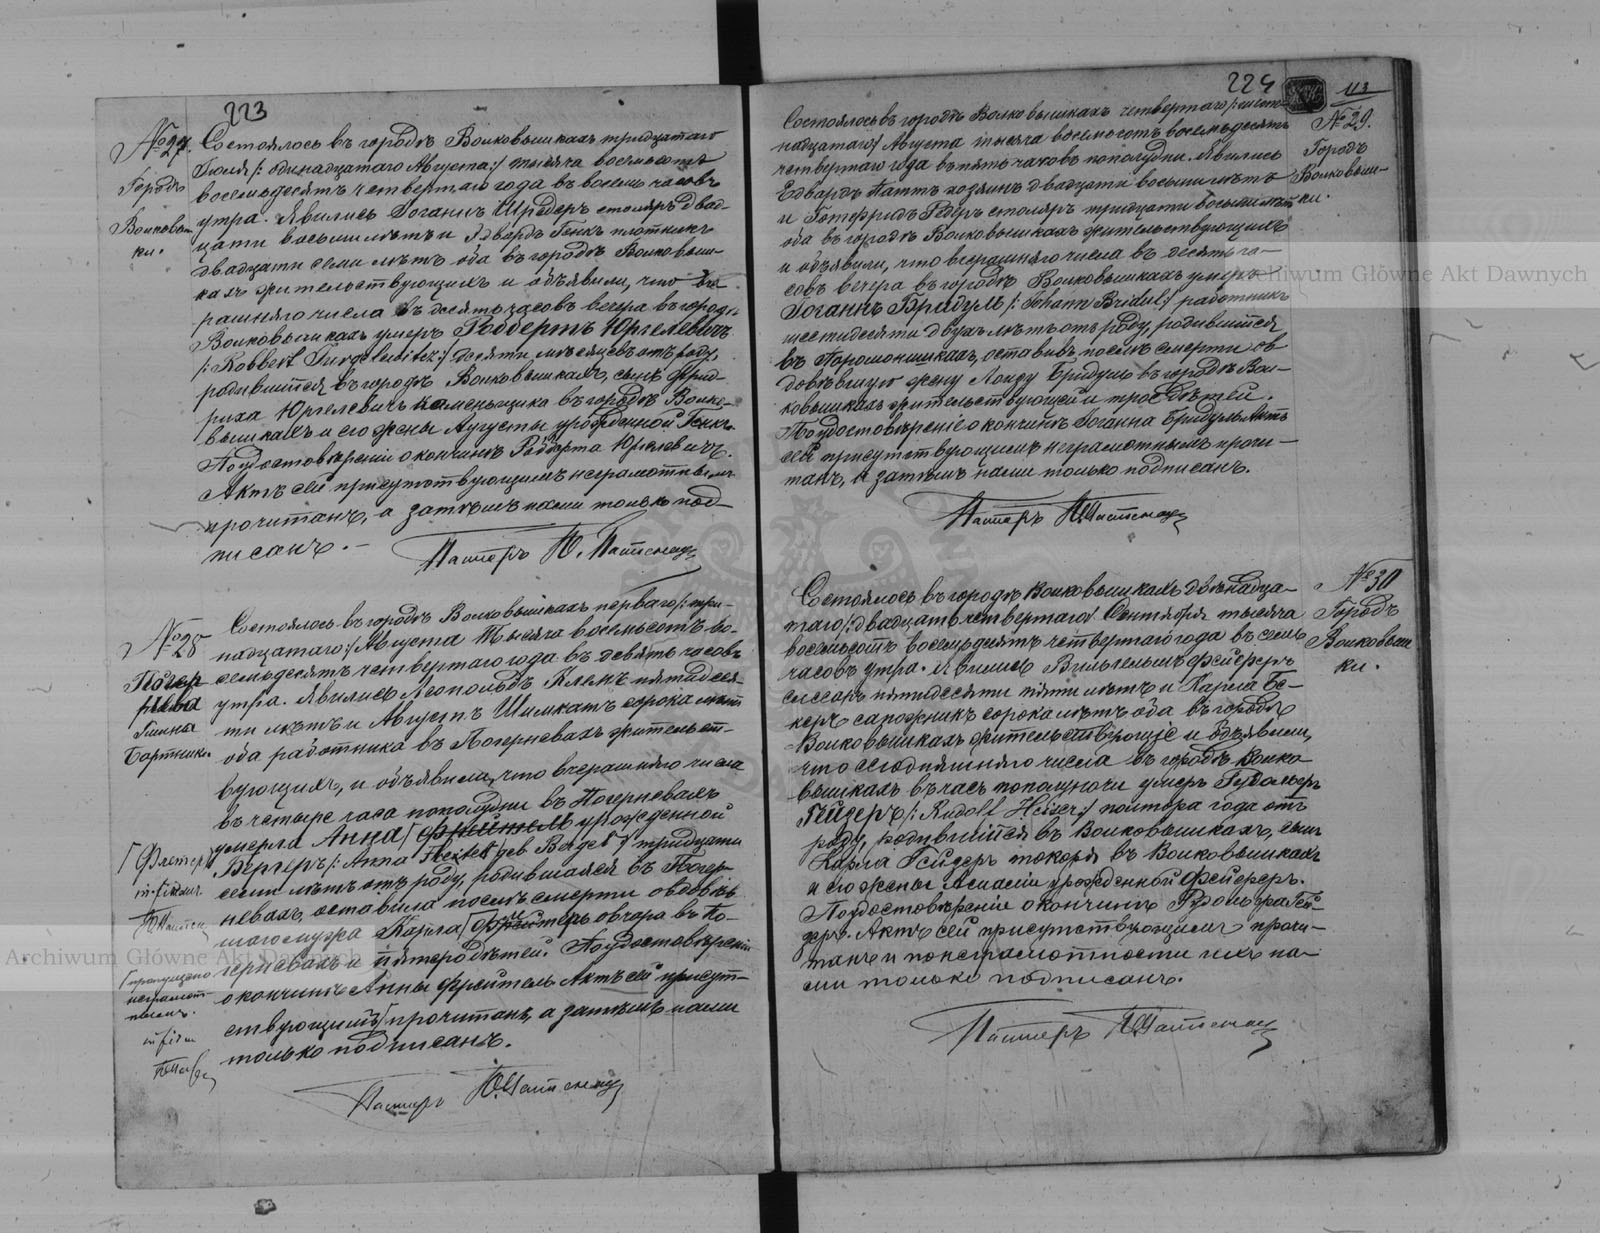 223
№ 27.
Городъ
Волковыш
ки.
Состоялось въ городѣ Волковышкахъ тридцатаго
Іюля /: одинадцатаго Августа :/ тысяча восемьсотъ
восемьдесятъ четвертаго года въ восемь часовъ
утра. Явились Іоганъ Шредеръ столяръ двад-
цати восьми лѣтъ и Эдвардъ Генкъ плотникъ
двадцати семи лѣтъ оба въ городѣ Волковыш-
кахъ жительствующихъ и объявили, что вче
рашняго числа въ десять часовъ вечера въ городѣ
Волковышкахъ умеръ Роббертъ Юргелевичъ
/: Robbert Jurgelewitcz :/ десяти мѣсяцевъ отъ роду,
родившійся въ городѣ Волковышкахъ, сынъ Фрид-
риха Юргелевичъ каменьщика въ городѣ Волко-
вышкахъ и его жены Аугусты урожденной Генкъ.
По удостовѣреніи о кончинѣ Робберта Юргелевичъ.
Актъ сей присутствующимъ неграмотнымъ
прочитанъ, а затѣмъ нами только под-
писанъ. —
Пасторъ
№ 28
Погер
невы
Гмина
Бартники.
Состоялось въ городѣ Волковышкахъ перваго /: три-
надцатаго :/ Августа тысяча восемьсотъ во-
семьдесятъ четвертаго года въ девять часовъ
утра. Явились Леопольдъ Клемъ пятидеся-
ти лѣтъ и Августъ Шимкатъ сорока лѣтъ
оба работника въ Погерневахъ жительст-
вующихъ, и объявили, что вчерашняго числа
въ четыре часа пополудни въ Погерневахъ
умерла Анна урожденной
Бергеръ /: Anna dev Berger :/ тридцати
семи лѣтъ отъ роду, родившаяся въ Погер
невахъ, оставила послѣ смерти овдовѣв-
шаго мужа Карла овчара въ По-
герневахъ и пятеро дѣтей. По удостовѣреніи
о кончинѣ Анны Актъ сей присут-
ствующимъ прочитанъ, а затѣмъ нами
только подписанъ.
Пасторъ
пропущено
неграмот-
нымъ.
224
113
№ 29.
Городъ
Волковыш-
ки.
Состоялось въ городѣ Волковышкахъ четвертаго /: шест-
надцатаго / Августа тысяча восемьсотъ восемьдесятъ
четвертаго года въ пять часовъ пополудни. Явились
Едвардъ Паттъ хозяинъ двадцати восьми лѣтъ
и Готфридъ Редеръ столяръ тридцати восьми лѣтъ
оба въ городѣ Волковышкахъ жительствующихъ
и объявили, что вчерашняго числа въ десять ча-
совъ вечера въ городѣ Волковышкахъ умеръ
Іоганнъ Бридуль /: Johann Bridul :/ работникъ
шестидесяти двухъ лѣтъ отъ роду, родившійся
въ оставивъ послѣ смерти ов
довѣвшую жену Луизу Бридуль въ городѣ Вол-
ковышкахъ жительствующей и трое дѣтей.
По удостовѣреніе о кончинѣ Іоганна Бридуль Актъ
сей присутствующимъ неграмотнымъ прочи-
танъ, а затѣмъ нами только подписанъ.
Пасторъ
№ 30
Городъ
Волковыш
ки.
Состоялось въ городѣ Волковышкахъ двѣнадца-
таго /: двадцать четвертаго / Сентября тысяча
восемьсотъ восемьдесятъ четвертаго года въ семь
часовъ утра. Явились Вильгельмъ Фейферъ
слесарь пятидесяти пяти лѣтъ и Карлъ Бе-
керъ сапожникъ сорока лѣтъ оба въ городѣ
Волковышкахъ жительствующіе и объявили,
что сегодняшняго числа въ городѣ Волко
вышкахъ въ часъ пополуночи умеръ Рудольфъ
Гейзеръ /: Rudolf Heiser :/ полтора года отъ
роду, родившійся въ Волковышкахъ, сынъ
Карла Гейзеръ токаря въ Волковышкахъ
и его жены Амаліи урожденной Фейферъ.
По удостовѣреніе о кончинѣ Рудольфа Гей-
зеръ. Актъ сей присутствующимъ прочи-
танъ и по неграмотности ихъ на-
ми только подписанъ.
Пасторъ
Archiwum Główne Akt Dawnych
Archiwum Główne Akt Dawnych